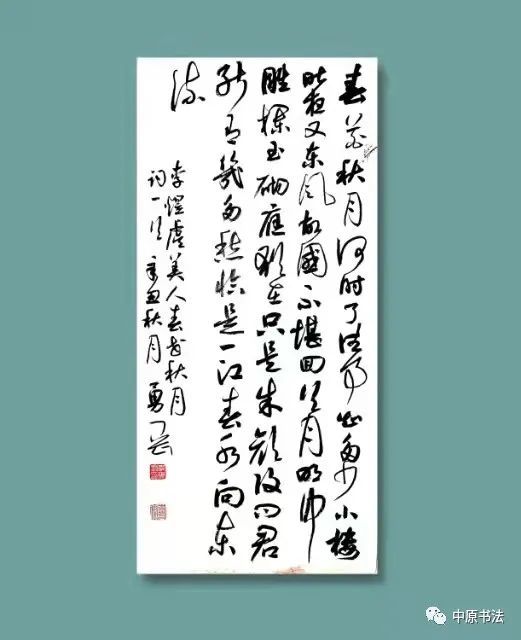 春花秋月何时了往事知多少小楼
昨夜又东风故國不堪回首月明中
雕栏玉砌應犹在只是朱颜改问君
能有幾多愁恰是一江春水向东
流
李煜虞美人春花秋月
词一首辛丑秋月勇
中原书法